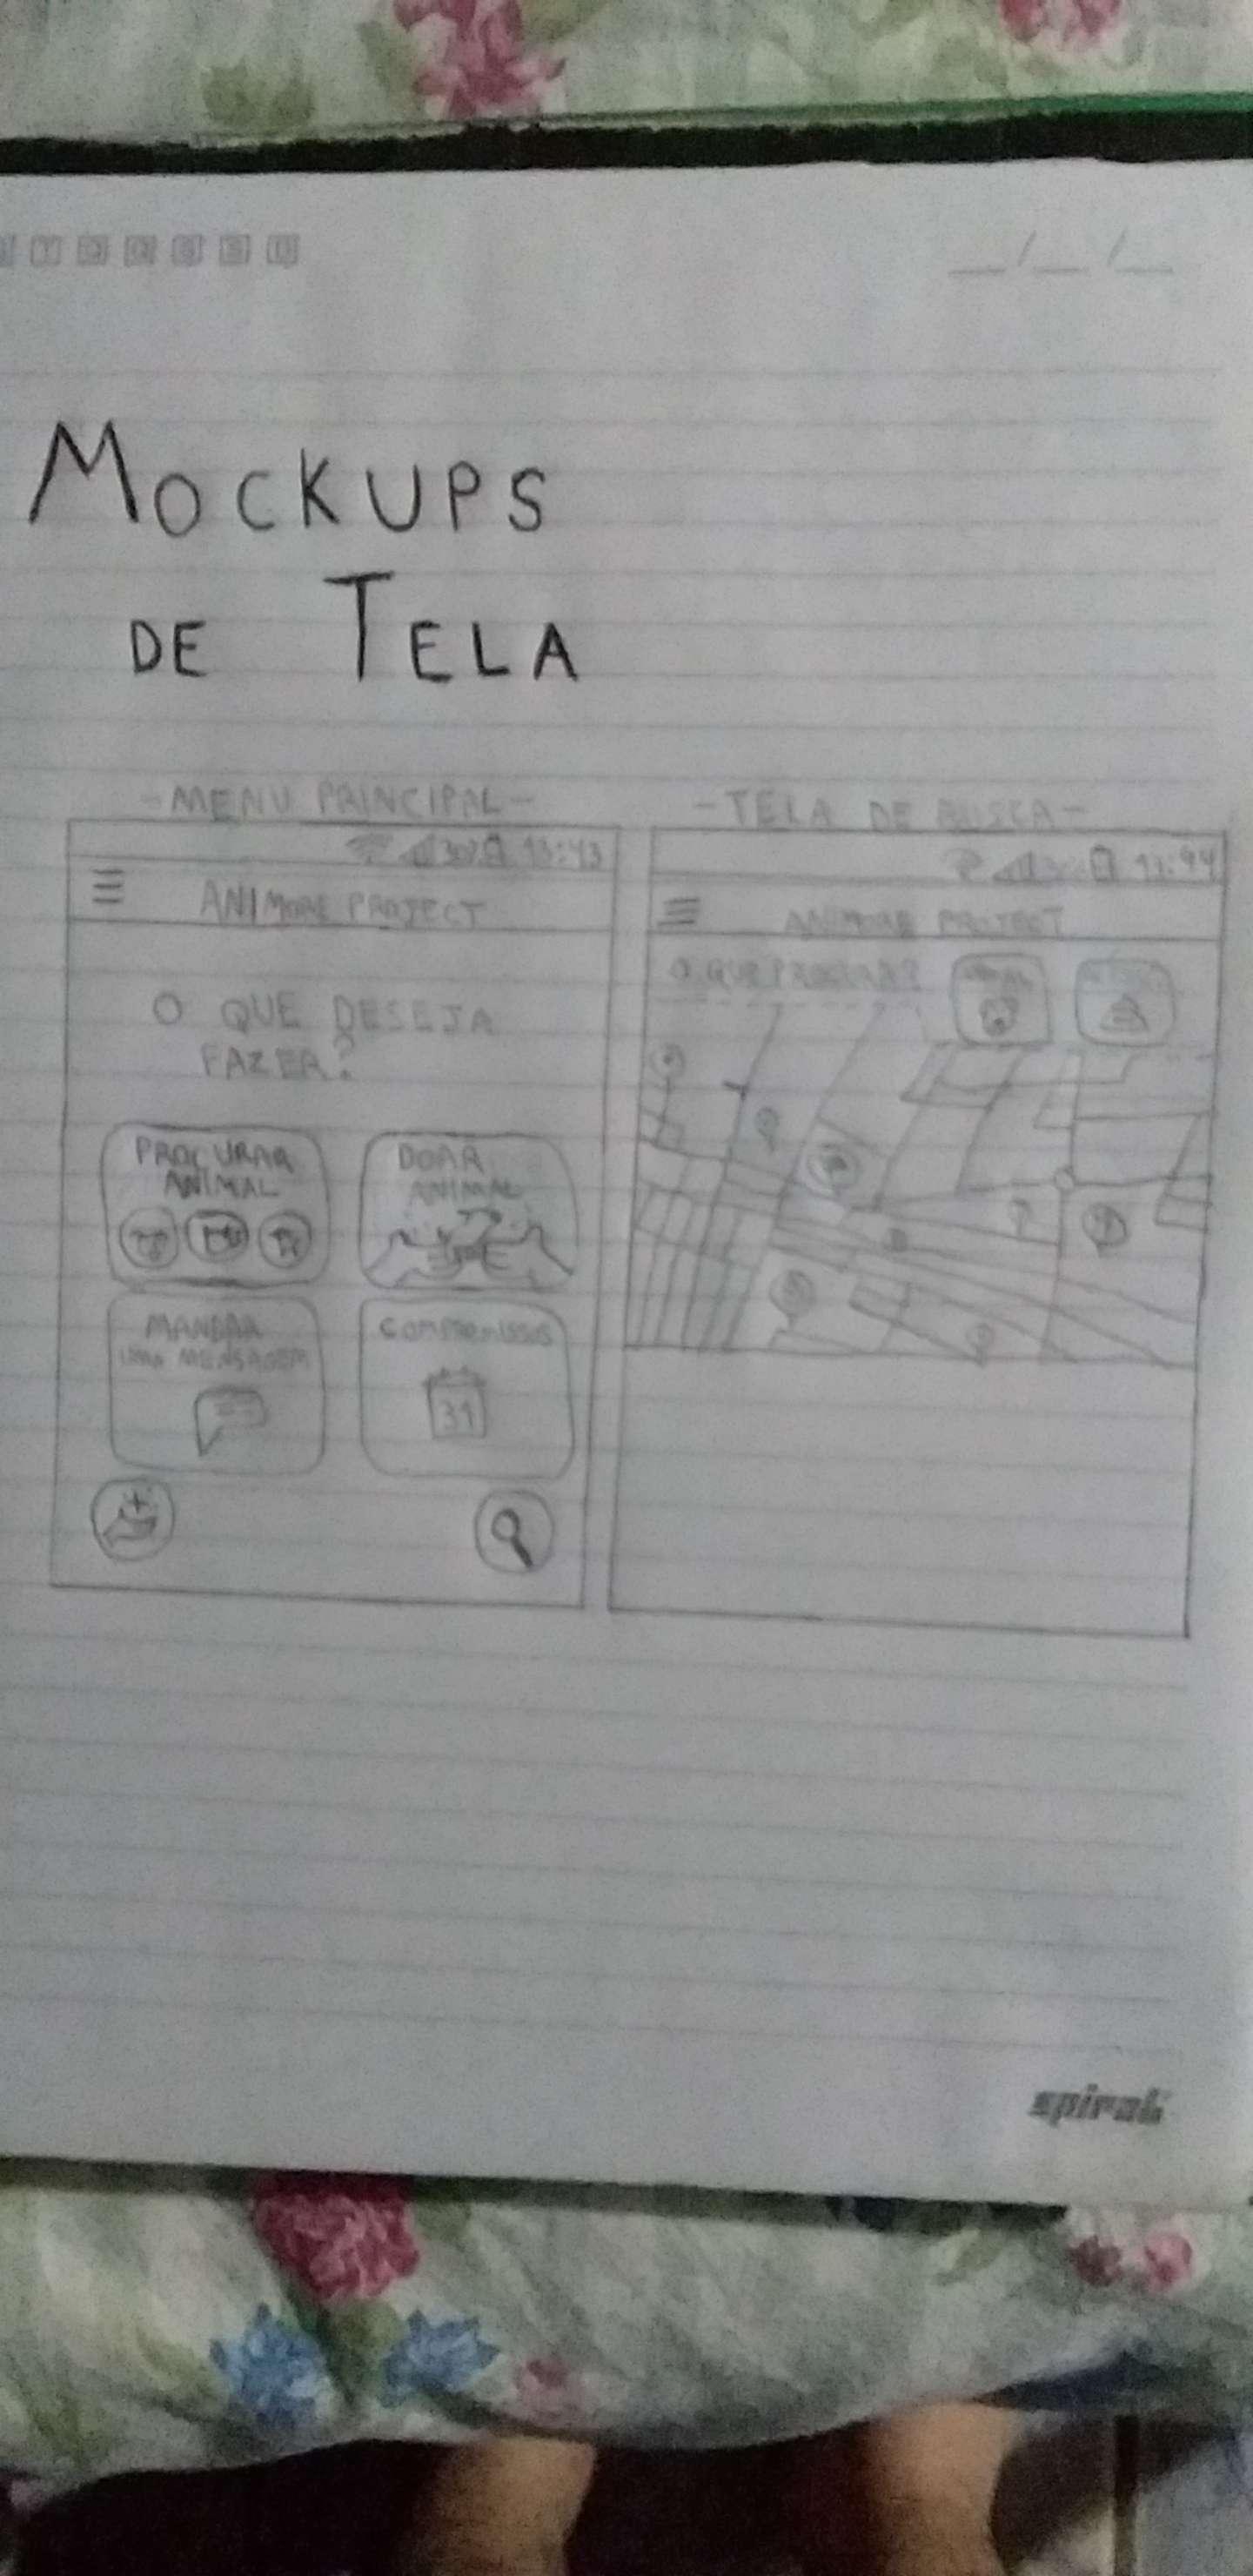 MOCKUPS
DE TELA
-MENU PRINCIPAL-
13:43
ANIMORE PROJECT
O QUE DESEJA
FAZER?
PROCURAR
ANIMAL
DOAR
ANIMAL
MANDAR
UMA MENSAGEM
COMPROMISSOS
31
-TELA DE BUSCA-
ANIMORE PROJECT
O QUE PROCURA?
spiral